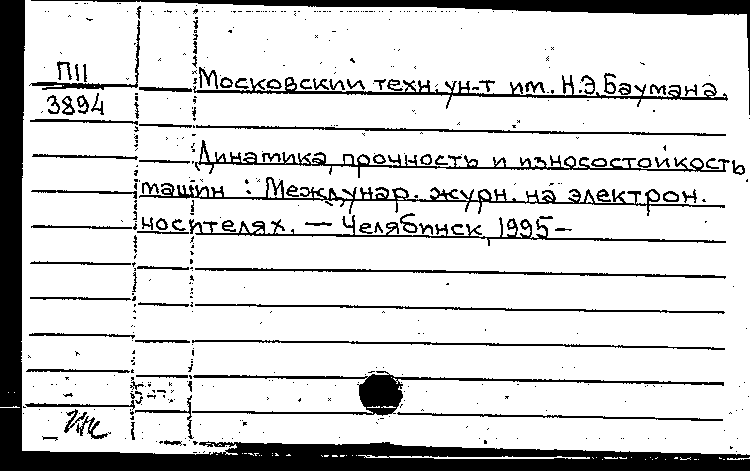 П11
3894
Московский техн. ун-т им. Н.Э. Баумана.
Динамика, прочность и износостойкость
машин : Междунар. журн. на электрон.
носителях. — Челябинск, 1995—